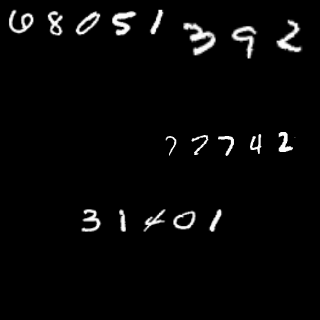 68051
392
77742
31401